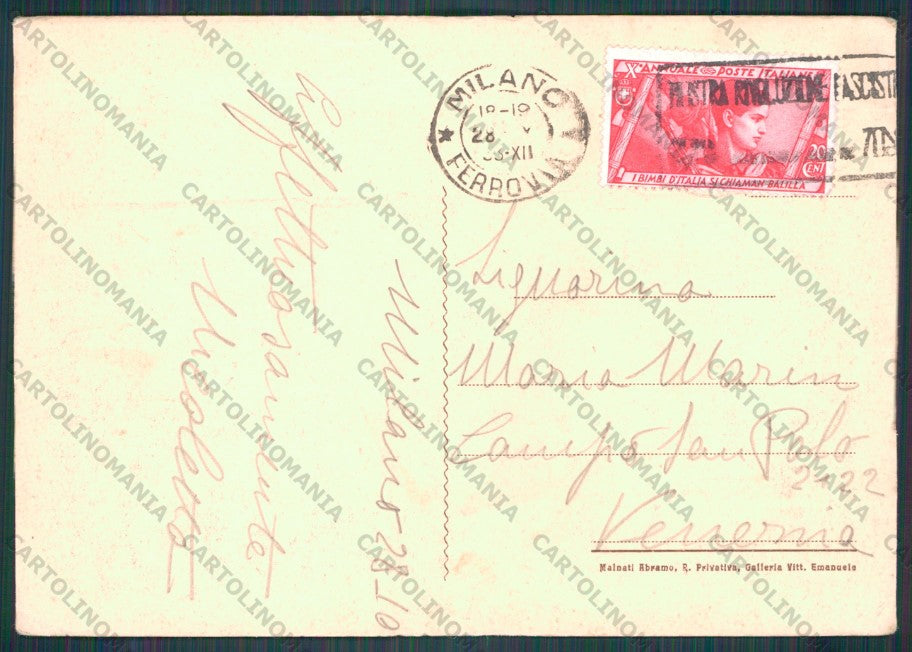 MILANO
18-19
28
33-XII
FERROVIA
X° ANNUALE POSTE ITALIANE
20
CENT
I BIMBI D'ITALIA SI CHIAMAN BALILLA
MOSTRA RIVOLUZIONE FASCISTA
Affettuosamente
Nicoletta
Milano 28_10
Signorina
Maria Marin
Campo San Polo
2022
Venezia
Mainati Abramo, R. Privativa, Galleria Vitt. Emanuele
CARTOLINOMANIA